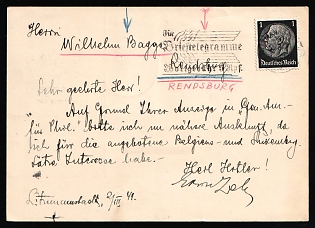 Herrn
Wilhelm Bagge
Für
Brieftelegramme
Wortgebühr Rpf.
Rendsburg
RENDSBURG
1 1
Deutsches Reich
Sehr geehrter Herr!
Auf Grund Ihrer Anzeige in "Gen. Anz.
für Phil." bitte ich um nähere Auskunft, da
ich für die angebotene Belgiens- und Luxemburg-
Interesse habe.-
Heil Hitler!
Litzmannstadt, 2/III 41.